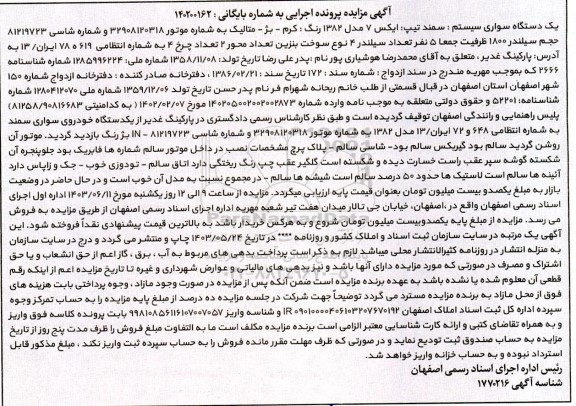 آگهی مزایده پرونده اجرایی به شماره بایگانی : ۱۴۰۲۰۰۱۶۲
یک دستگاه سواری سیستم : سمند تیپ: ایکس ۷ مدل ۱۳۸۲ رنگ : کرم - بژ- متالیک به شماره موتور ۳۲۹۰۸۱۲۰۳۱۸ و شماره شاسی ۸۱۲۱۹۷۲۳
حجم سیلندر ۱۸۰۰ ظرفیت جمعا ۵ نفر تعداد سیلندر ۴ نوع سوخت بنزین تعداد محور ۲ تعداد چرخ ۴ به شماره انتظامی ۶۱۹ ه ۷۸ ایران/ ۱۳ به
آدرس: پارکینگ غدیر ، متعلق به آقای محمدرضا هوشیاری پور نام :پدر علی رضا تاریخ تولد: ۱۳۵۸/۱۱/۰۸ شماره ملی: ۱۲۸۵۹۹۶۲۲۴ شماره شناسنامه
۲۶۶۶ که بموجب مهریه مندرج در سند ازدواج : شماره سند : ۱۷۲ تاریخ سند : ۱۳۸۶/۰۲/۲۱ ، دفترخانه صادر کننده : دفترخانه ازدواج شماره ۱۵۰
شهر اصفهان استان اصفهان در قبال قسمتی از طلب خانم ریحانه شهرام فر نام پدر حسن تاریخ تولد ۱۳۵۹/۱۲/۰۶ شماره ملی ۱۲۸۰۴۱۲۰۷۰ شماره
شناسنامه: ۵۲۲۰۱ و حقوق دولتی متعلقه به موجب نامه وارده شماره ۱۴۰۲۰۵۰۰۲۰۰۲۰۰۲۸۷۳ مورخ ۱۴۰۲/۰۲/۰۷ ( به کدامنیتی ۸۱۲۵۸/۹۰۸۱۶۶۸۳)
پلیس راهنمایی و رانندگی اصفهان توقیف گردیده است و طبق نظر کارشناس رسمی دادگستری در پارکینگ غدیر از یکدستگاه خودروی سواری سمند
به شماره انتظامی ۶۴۸ و ۷۲ ایران/۱۳ مدل ۱۳۸۲ به شماره موتور ۳۲۹۰۸۱۲۰۳۱۸ و شماره شاسی IN - ۸۱۲۱۹۷۲۳ بژ رنگ بازدید گردید. موتور آن
روشن گردید سالم بود گیربکس سالم بود- شاسی سالم - پلاک پرچ مشخصات نصب در داخل موتور سالم شماره ها فابریک بود جلوپنجره آن
شکسته گوشه سپر عقب راست خسارت دیده و شکسته است گلگیر عقب چپ رنگ ریختگی دارد اتاق سالم - تودوزی خوب - جک و زاپاس دارد
آئینه ها سالم است لاستیک ها حدود ۵۰ درصد سالم است شیشه ها سالم - در مجموع نسبت به مدل آن خوب است و در حال حاضر در وضعیت
بازار به مبلغ یکصدو بیست میلیون تومان بعنوان قیمت پایه ارزیابی میگردد. مزایده از ساعت ۹ الی ۱۲ روز یکشنبه مورخ ۱۴۰۳/۰۶/۱۱ اداره اول اجرای
اسناد رسمی اصفهان واقع در ،اصفهان، خیابان جی تالار میدان هفت تیر شعبه مهریه اداره اجرای اسناد رسمی اصفهان از طریق مزایده به فروش
می رسد. مزایده از مبلغ پایه یکصدوبیست میلیون تومان شروع و به هرکس خریدار باشد به بالاترین قیمت پیشنهادی نقداً فروخته شود. این
آگهی یک مرتبه در سایت سازمان ثبت اسناد و املاک کشور و روزنامه --- در تاریخ ۱۴۰۳/۰۵/۲۴ چاپ و منتشر می گردد و درج در سایت سازمان
به منزله انتشار در روزنامه کثیرالانتشار محلی میباشد لازم به ذکر است پرداخت بدهی های مربوط به آب ، برق ، گاز اعم از حق انشعاب و یا حق
اشتراک و مصرف در صورتی که مورد مزایده دارای آنها باشد و نیز بدهی های مالیاتی و عوارض شهرداری و غیره تا تاریخ مزایده اعم از اینکه رقم
قطعی آن معلوم شده یا نشده باشد به عهده برنده مزایده است ضمن آنکه پس از مزایده در صورت وجود مازاد ، وجوه پرداختی بابت هزینه های
فوق از محل مازاد به برنده مزایده مسترد می گردد توضیحاً جهت شرکت در جلسه مزایده ده درصد از مبلغ پایه مزایده را به حساب تمرکز وجوه
سپرده اداره کل ثبت اسناد املاک اصفهان IR ۰۹۰۱۰۰۰۰۴۰۶۱۰۳۲۰۷۶۷۰۱۹۲ و شناسه واریز ۹۹۸۱۰۸۵۶۱۱۶۱۰۷۰۰۷۰۵۷ بابت پرونده کلاسه فوق واریز
و به همراه تقاضای کتبی و ارائه کارت شناسایی معتبر الزامی است برنده مزایده مکلف است ما به التفاوت مبلغ فروش را ظرف مدت پنج روز از تاریخ
مزایده به حساب صندوق ثبت تودیع نماید و در صورتی که ظرف مهلت مقرر مانده فروش را به حساب سپرده ثبت واریز نکند ، مبلغ مذکور قابل
استرداد نبوده و به حساب خزانه واریز خواهد شد.
رئیس اداره اجرای اسناد رسمی اصفهان
شناسه آگهی ۱۷۷۰۲۱۶